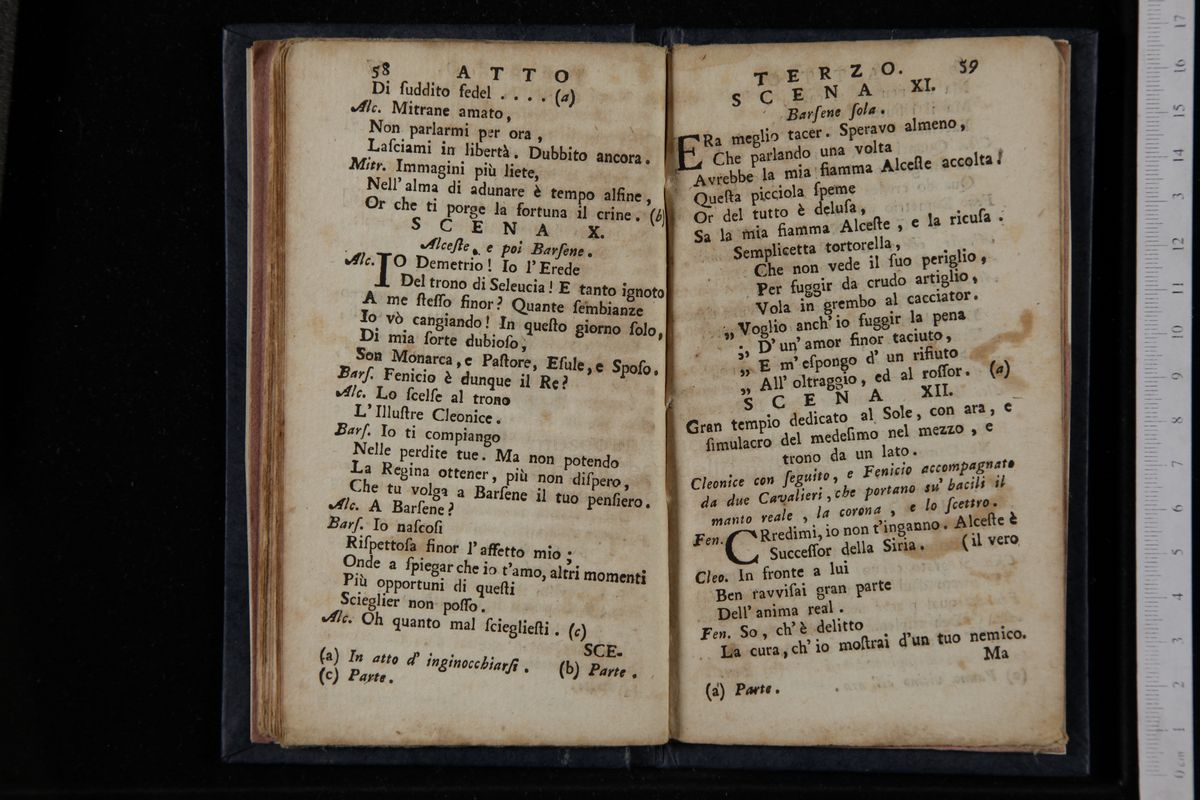 58 ATTO
Di ſuddito fedel . . . . (a)
Alc. Mitrane amato,
Non parlarmi per ora ,
Laſciami in libertà. Dubbito ancora.
Mitr. Immagini più liete,
Nell' alma di adunare è tempo alfine,
Or che ti porge la fortuna il crine. (b)
SCENA X.
Alceſte, e poi Barſene.
Alc. IO Demetrio! Io l'Erede
Del trono di Seleucia! E tanto ignoto
A me ſteſſo finor? Quante ſembianze
Io vò cangiando! In queſto giorno ſolo,
Di mia ſorte dubioſo,
Son Monarca, e Paſtore, Eſule, e Spoſo.
Barſ. Fenicio è dunque il Re?
Alc. Lo ſcelſe al trono
L'Illuſtre Cleonice.
Barſ. Io ti compiango
Nelle perdite tue. Ma non potendo
La Regina ottener, più non diſpero,
Che tu volga a Barſene il tuo penſiero.
Alc. A Barſene?
Barſ. Io naſcoſi
Riſpettoſa finor l'affetto mio ;
Onde a ſpiegar che io t'amo, altri momenti
Più opportuni di queſti
Scieglier non poſſo.
Alc. Oh quanto mal ſcieglieſti. (c)
SCE-
(a) In atto d' inginocchiarſi. (b) Parte.
(c) Parte.
TERZO. 59
SCENA XI.
Barſene ſola.
ERa meglio tacer. Speravo almeno,
Che parlando una volta
Avrebbe la mia fiamma Alceſte accolta!
Queſta picciola ſpeme
Or del tutto è deluſa,
Sa la mia fiamma Alceſte, e la ricuſa.
Semplicetta tortorella,
Che non vede il ſuo periglio,
Per fuggir da crudo artiglio,
Vola in grembo al cacciator.
„ Voglio anch' io fuggir la pena
„ D' un' amor finor taciuto,
„ E m' eſpongo d' un rifiuto
„ All' oltraggio, ed al roſſor. (a)
SCENA XII.
Gran tempio dedicato al Sole, con ara, e
ſimulacro del medeſimo nel mezzo, e
trono da un lato.
Cleonice con ſeguito, e Fenicio accompagnato
da due Cavalieri, che portano su' bacili il
manto reale, la corona, e lo ſcettro.
Fen. CRredimi, io non t'inganno. Alceſte è
Succeſſor della Siria. (il vero
Cleo. In fronte a lui
Ben ravviſai gran parte
Dell' anima real.
Fen. So, ch' è delitto
La cura, ch' io moſtrai d'un tuo nemico.
Ma
(a) Parte.
0 cm 1 2 3 4 5 6 7 8 9 10 11 12 13 14 15 16 17